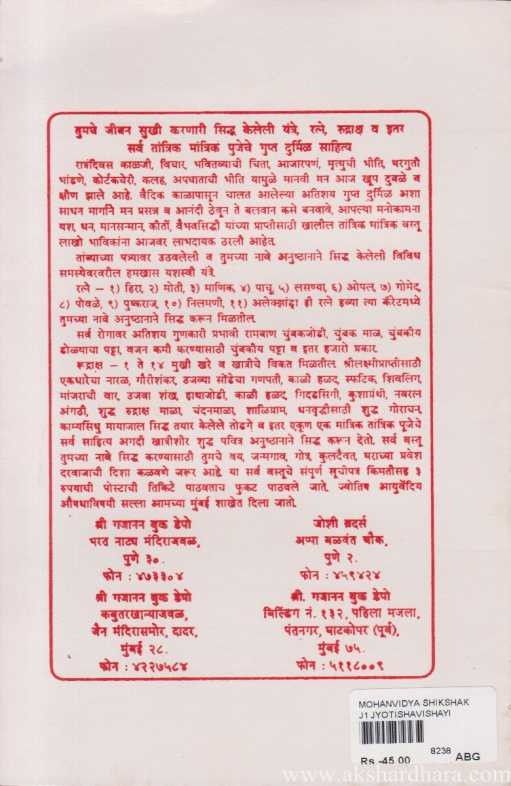 तुमचे जीवन सुखी करणारी सिद्ध केलेली यंत्रे, रत्ने, रुद्राक्ष व इतर
सर्व तांत्रिक मांत्रिक पुजेचे गुप्त दुर्मिळ साहित्य
रात्रंदिवस काळजी, विचार, भवितव्याची चिंता, आजारपणं, मृत्युची भीति, घरगुती
भांडणे, कोर्टकचेरी, कलह, अपघाताची भीति यामुळे मानवी मन आज खूप दुबळे व
क्षीण झाले आहे. वैदिक काळापासून चालत आलेल्या अतिशय गुप्त दुर्मिळ अशा
साधन मार्गाने मन प्रसन्न व आनंदी ठेवून ते बलवान कसे बनवावे, आपल्या मनोकामना
यश, धन, मानसन्मान, कीर्ती, वैभवसिद्धी यांच्या प्राप्तीसाठी खालील तांत्रिक मांत्रिक वस्तू
लाखो भाविकांना आजवर लाभदायक ठरली आहेत.
तांब्याच्या पत्र्यावर उठवलेली व तुमच्या नावे अनुष्ठानाने सिद्ध केलेली विविध
समस्येवरवरील हमखास यशस्वी यंत्रे.
रत्ने – १) हिरा, २) मोती, ३) माणिक, ४) पाचू, ५) लसण्या, ६) ओपल, ७) गोमेद,
८) पोवळे, ९) पुष्कराज, १०) निलमणी, ११) अलेक्झांड्रा ही रत्ने हव्या त्या कॅरेटमध्ये
तुमच्या नावाने सिद्ध करून मिळतील.
सर्व रोगावर अतिशय गुणकारी प्रभावी रामबाण चुंबकजोडी, चुंबक माळ, चुंबकीय
डोळ्याचा पट्टा, वजन कमी करण्यासाठी चुंबकीय पट्टा व इतर हजारो प्रकार.
रूद्राक्ष – १ ते १४ मुखी खरे व खात्रीचे विकत मिळतील श्रीलक्ष्मीप्राप्तीसाठी
एकधारेचा नारळ, गौरीशंकर, उजव्या सोंडेचा गणपती, काळी हळद, स्फटिक, शिवलिंग,
मांजराची वार, उजवा शंख, हाथाजोडी, काळी हळद, गिदडसिंगी, कुशाग्रंथी, नवरत्न
अंगठी, शुद्ध रुद्राक्ष माळा, चंदनमाळा, शाळिग्राम, धनवृद्धीसाठी शुद्ध गोरोचन,
काम्यसिधु मायाजाल सिद्ध तयार केलेले तोडगे व इतर एकूण एक मांत्रिक तांत्रिक पूजेचे
सर्व साहित्य अगदी खात्रीशीर शुद्ध पवित्र अनुष्ठानाने सिद्ध करून देतो. सर्व वस्तू
तुमच्या नावे सिद्ध करण्यासाठी तुमचे वय, जन्मगाव, गोत्र, कुलदैवत, घराच्या प्रवेश
दरवाजाची दिशा कळवणे जरूर आहे. या सर्व वस्तूचे संपूर्ण सूचीपत्र किंमतीसह ३
रुपयाची पोस्टाची तिकिटे पाठवताच फुकट पाठवले जाते. ज्योतिष आयुर्वेदिय
औषधाविषयी सल्ला आमच्या मुंबई शाखेत दिला जातो.
श्री गजानन बुक डेपो
भरत नाट्य मंदिराजवळ,
पुणे ३०.
फोन : ४७३३०४
जोशी ब्रदर्स
अप्पा बळवंत चौक,
पुणे २.
फोन : ४५९४२४
श्री गजानन बुक डेपो
कबुतरखान्याजवळ,
जैन मंदिरासमोर, दादर,
मुंबई २८.
फोन : ४२२७५८४
श्री. गजानन बुक डेपो
बिल्डिंग नं. १३२, पहिला मजला,
पंतनगर, घाटकोपर (पूर्व),
मुंबई ७५.
फोन : ५११८००९
MOHANVIDYA SHIKSHAK
J1 JYOTISHAVISHAYI
8238
Rs -45.00 ABG
www.akshardhara.com